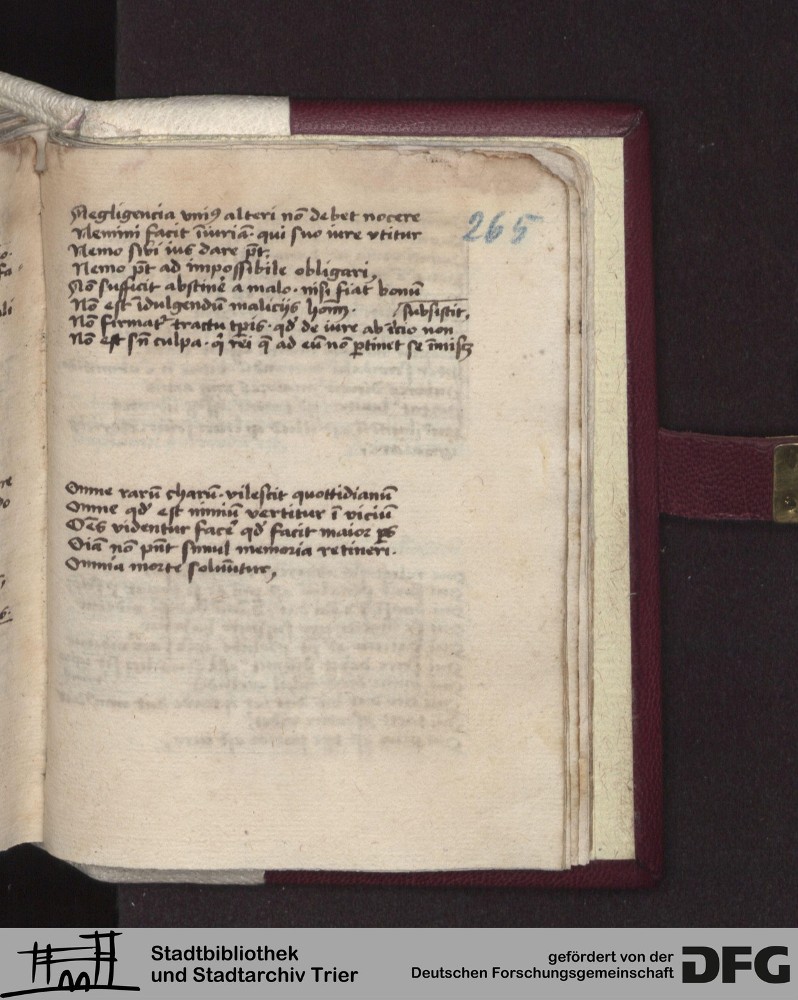 Negligencia vniꝰ alteri nō debet nocere
265
Nemini facit īiuriā · qui suo iure vtitur
Nemo sibi ius dare pt̄.
Nemo pt̄ ad impossibile obligari,
Nō sufficit abstinē a malo · nisi fiat bonū
Nō est īdulgendū malicijs hom̄ · /subsistit,
Nō firmatʳ tractu tp̄is · qd̕ de iure ab īcio non
Nō est sn̄ culpa · qͥ rei q̄ ad eū nō ꝑtinet se īmisꝫ
Omne rarū charū · vilescit quottidianū
Omne qd̕ est nimiū vertitur ī viciū
Oēs videntur facē qd̕ facit maior ps
Oīa nō pn̄t simul memoria retineri ·
Omnia morte soluūtur,
Stadtbibliothek
und Stadtarchiv Trier
gefördert von der
Deutschen Forschungsgemeinschaft
DFG